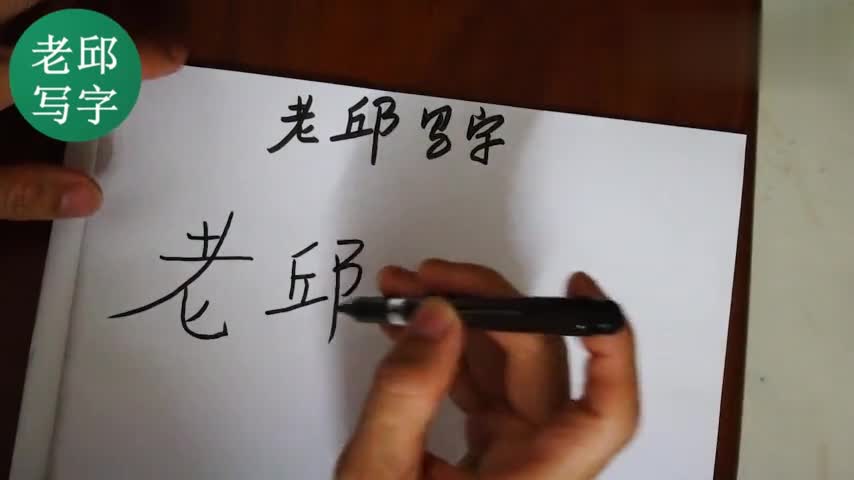 老邱
写字
老邱写字
老邱